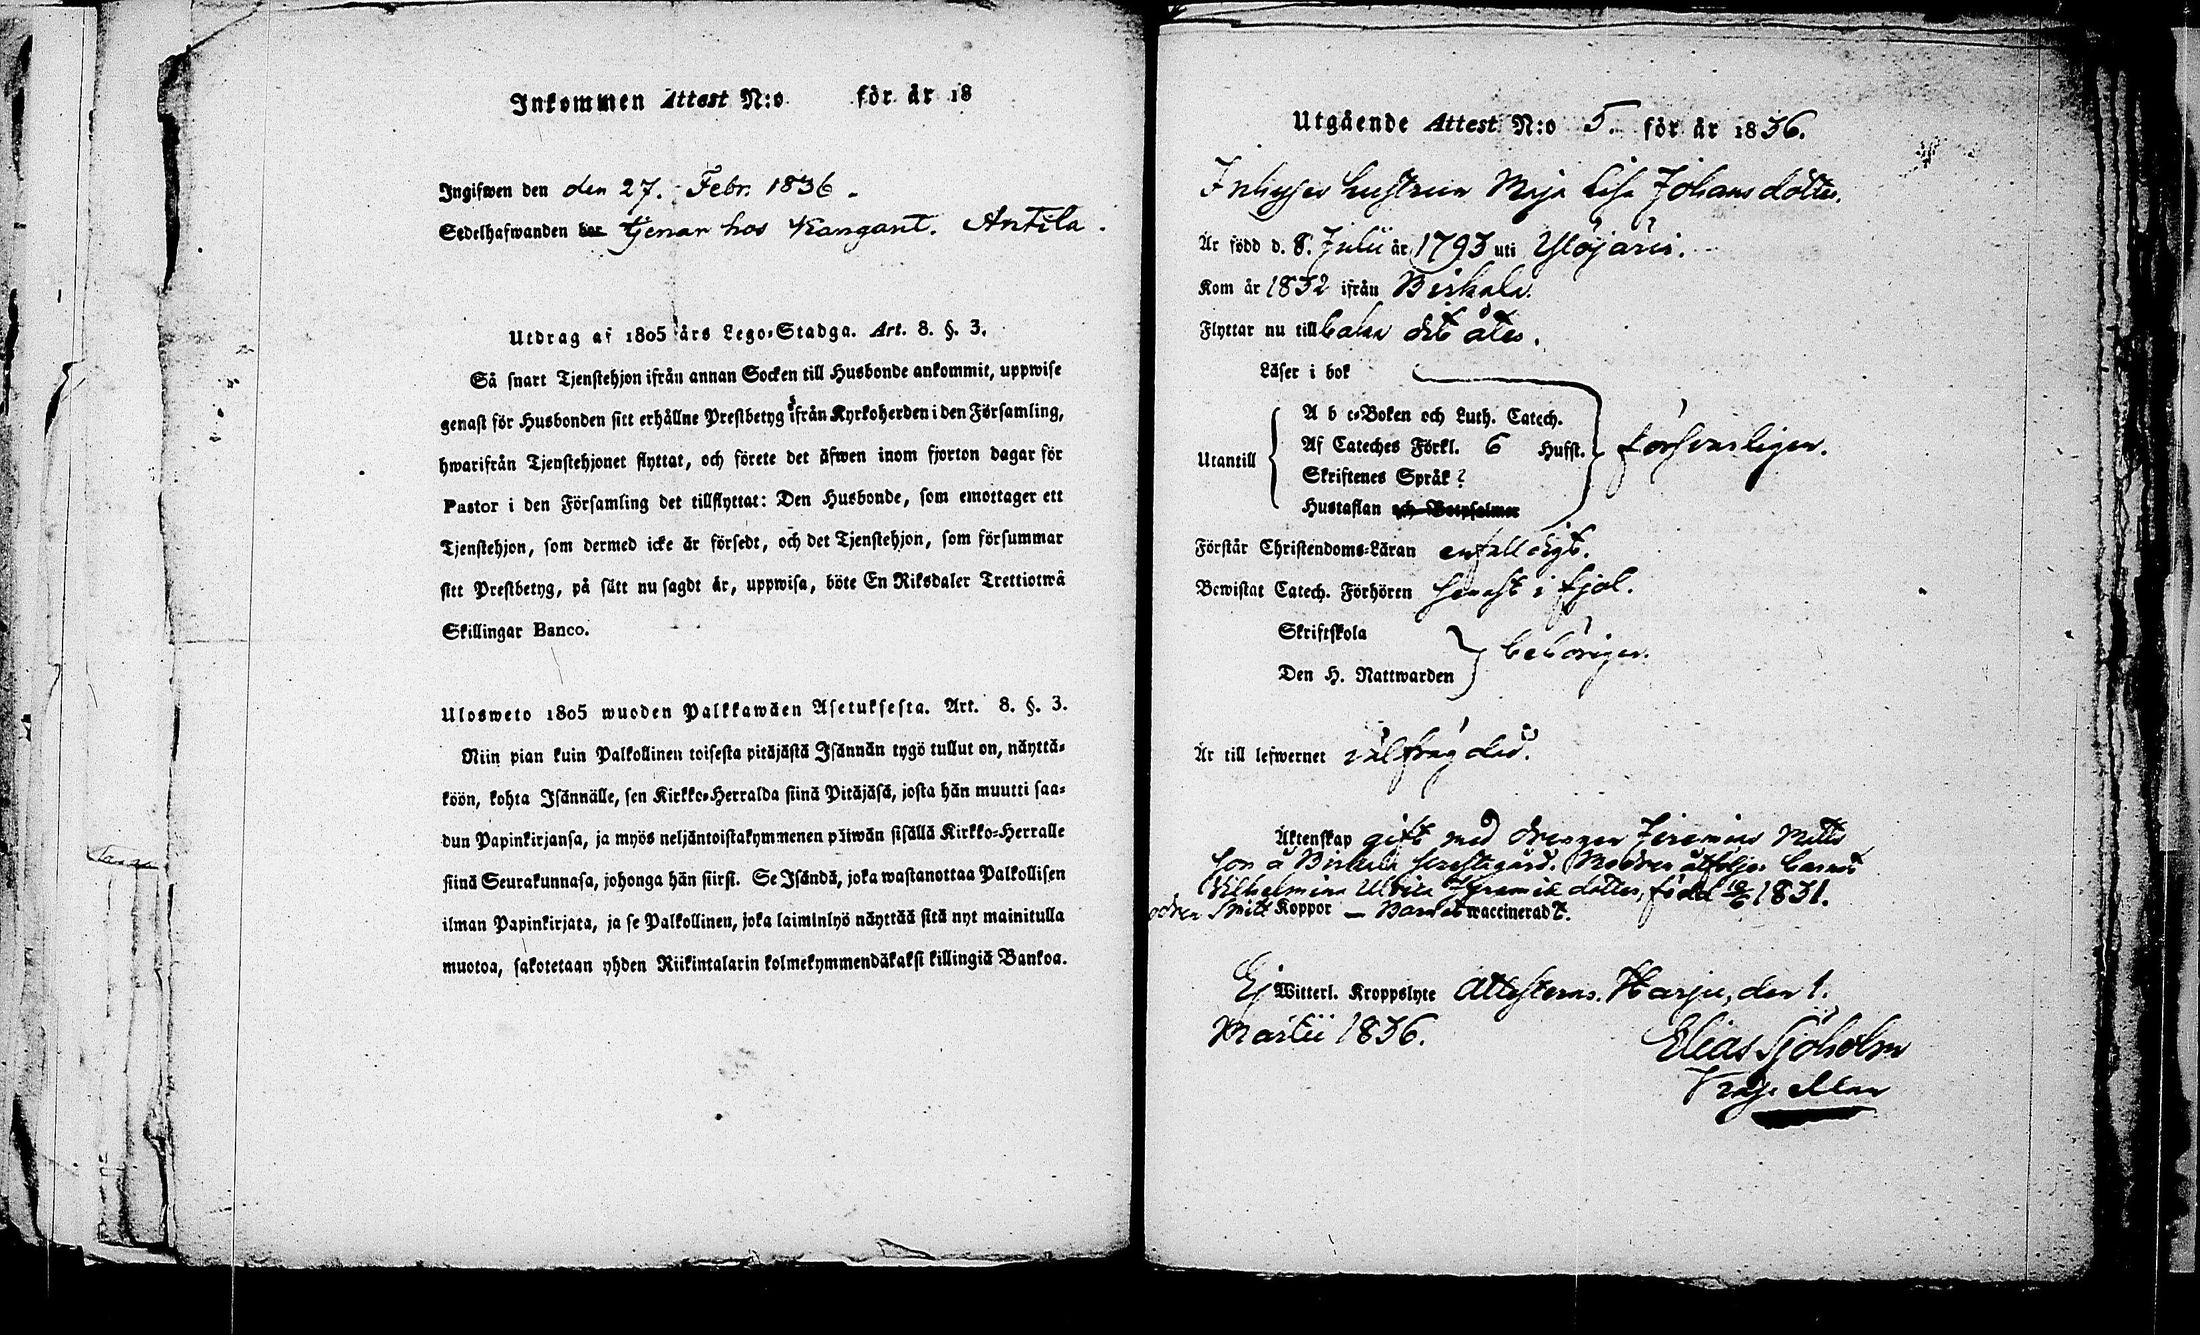 Inkommen Attest N:o för år 18
Ingifwen den den 27. Febr. 1836.
Sedelhafwanden har tjenar hos Kangant. Antila.
Utdrag af 1805 års Lego-Stadga. Art. 8. §. 3.
Så snart Tjenstehjon ifrån annan Socken till Husbonde ankommit, uppwise
genast för Husbonden sitt erhållne Prestbetyg ifrån Kyrkoherden i den Församling,
hwarifrån Tjenstehjonet flyttat, och förete det äfwen inom fjorton dagar för
Pastor i den Församling det tillflyttat: Den Husbonde, som emottager ett
Tjenstehjon, som dermed icke är försedt, och det Tjenstehjon, som försummar
sitt Prestbetyg, på sätt nu sagdt är, uppwisa, böte En Riksdaler Trettiotwå
Skillingar Banco.
Ulosweto 1805 wuoden Palkkawäen Asetuksesta. Art. 8. §. 3.
Niin pian kuin Palkollinen toisesta pitäjästä Isännän tygö tullut on, näyttä-
köön, kohta Isännälle, sen Kirkko-Herralda siinä Pitäjäsä, josta hän muutti saa-
dun Papinkirjansa, ja myös neljäntoistakymmenen päiwän sisällä Kirkko-Herralle
siinä Seurakunnasa, johonga hän siirsi. Se Isändä, joka wastanottaa Palkollisen
ilman Papinkirjata, ja se Palkollinen, joka laiminlyö näyttää sitä nyt mainitulla
muotoa, sakotetaan yhden Riikintalarin kolmekymmendäkaksi killingiä Bankoa.
Utgående Attest N:o 5. för år 1836.
Inhyses hustrun Maja Lisa Johansdotter.
Är född d. 8. Julii år 1793 uti Ylöjärvi.
Kom år 1832 ifrån Birkala.
Flyttar nu tillbaka dit åter.
Läser i bok
A b c-Boken och Luth. Catech.
Af Cateches Förkl. 6 Hufst. försvarligen.
Utantill
Skriftenes Språk?
Hustaflan och Botpsalmer
Förstår Christendoms-Läran enfaldigt.
Bewistat Catech. Förhören senast i fjol.
Skriftskola
behörigen.
Den H. Nattwarden
Är till lefwernet välfrägdad.
Äktenskap gift med drengen Jeremias Matts
son å Birkala prestegård. Modren åtföljer barnet
Vilhelmina Ulrica Jeremiæ dotter, född 1831.
Koppor — Barnet waccineradt.
Ej Witterl. Kroppslyte Attesteras. Harju, den 1.
Martii 1836.
Elias Sjöholm